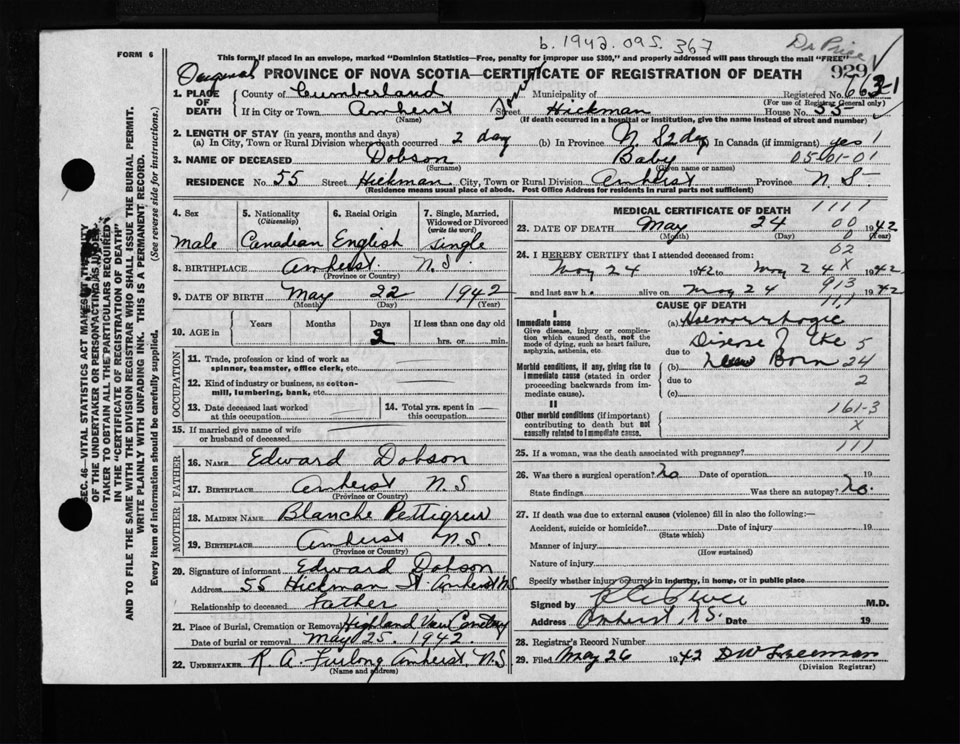 b. 1942. 095. 367
Dr Price
FORM 6
This form if placed in an envelope, marked "Dominion Statistics—Free, penalty for improper use $300," and properly addressed will pass through the mail "FREE"
929
PROVINCE OF NOVA SCOTIA—CERTIFICATE OF REGISTRATION OF DEATH
1. PLACE OF DEATH
County of Cumberland Municipality of Registered No.
(For use of Registrar General only)
If in City or Town Amherst Street Hickman House No. 55
(Name) (If death occurred in a hospital or institution, give the name instead of street and number)
2. LENGTH OF STAY (in years, months and days)
(a) In City, Town or Rural Division where death occurred 2 day (b) In Province N.S 2 dy (c) In Canada (if immigrant) yes
3. NAME OF DECEASED Dobson Baby 05-01-01
(Surname) (Given name or names)
RESIDENCE No. 55 Street Hickman City, Town or Rural Division Amherst Province N.S
(Residence means usual place of abode. Post Office Address for residents in rural parts not sufficient)
4. Sex
Male
5. Nationality
(Citizenship)
Canadian
6. Racial Origin
English
7. Single, Married, Widowed or Divorced
(write the word)
Single
8. BIRTHPLACE Amherst N.S.
(Province or Country)
9. DATE OF BIRTH May 22 1942
(Month) (Day) (Year)
10. AGE in Years Months Days If less than one day old
2 hrs. or min.
OCCUPATION
11. Trade, profession or kind of work as spinner, teamster, office clerk, etc.
12. Kind of industry or business, as cotton-mill, lumbering, bank, etc.
13. Date deceased last worked at this occupation
14. Total yrs. spent in this occupation
15. If married give name of wife or husband of deceased
FATHER
16. Name Edward Dobson
17. Birthplace Amherst N.S
(Province or Country)
MOTHER
18. Maiden Name Blanche Pettigrew
19. Birthplace Amherst N.S.
(Province or Country)
20. Signature of informant Edward Dobson
Address 55 Hickman St. Amherst N.S
Relationship to deceased Father
21. Place of Burial, Cremation or Removal Highland View Cemetery
Date of burial or removal May 25. 1942.
22. UNDERTAKER R. A. Furlong Amherst, N.S
(Name and address)
MEDICAL CERTIFICATE OF DEATH
1111
23. DATE OF DEATH May 24 1942
(Month) (Day) (Year)
24. I HEREBY CERTIFY that I attended deceased from:
May 24 1942 to May 24 1942
and last saw h alive on May 24 1942
913
CAUSE OF DEATH
I
Immediate cause
Give disease, injury or complication which caused death, not the mode of dying, such as heart failure, asphyxia, asthenia, etc.
Morbid conditions, if any, giving rise to immediate cause (stated in order proceeding backwards from immediate cause).
II
Other morbid conditions (if important) contributing to death but not causally related to immediate cause.
(a) Haemorrhagic
Disease of the 5
due to
(b) New Born 24
due to 2
(c)
161-3
X
25. If a woman, was the death associated with pregnancy? 111
26. Was there a surgical operation? no Date of operation 19
State findings Was there an autopsy? no.
27. If death was due to external causes (violence) fill in also the following:—
Accident, suicide or homicide? Date of injury 19
(State which)
Manner of injury
(How sustained)
Nature of injury
Specify whether injury occurred in industry, in home, or in public place
Signed by M.D.
Address Amherst, N.S. Date 19
28. Registrar's Record Number
29. Filed May 26 1942 DW Freeman
(Division Registrar)
OF THE UNDERTAKER OR PERSON ACTING AS UNDERTAKER TO OBTAIN ALL THE PARTICULARS REQUIRED IN THE "CERTIFICATE OF REGISTRATION OF DEATH"
AND TO FILE THE SAME WITH THE DIVISION REGISTRAR WHO SHALL ISSUE THE BURIAL PERMIT.
WRITE PLAINLY WITH UNFADING INK. THIS IS A PERMANENT RECORD.
Every item of information should be carefully supplied. (See reverse side for instructions.)